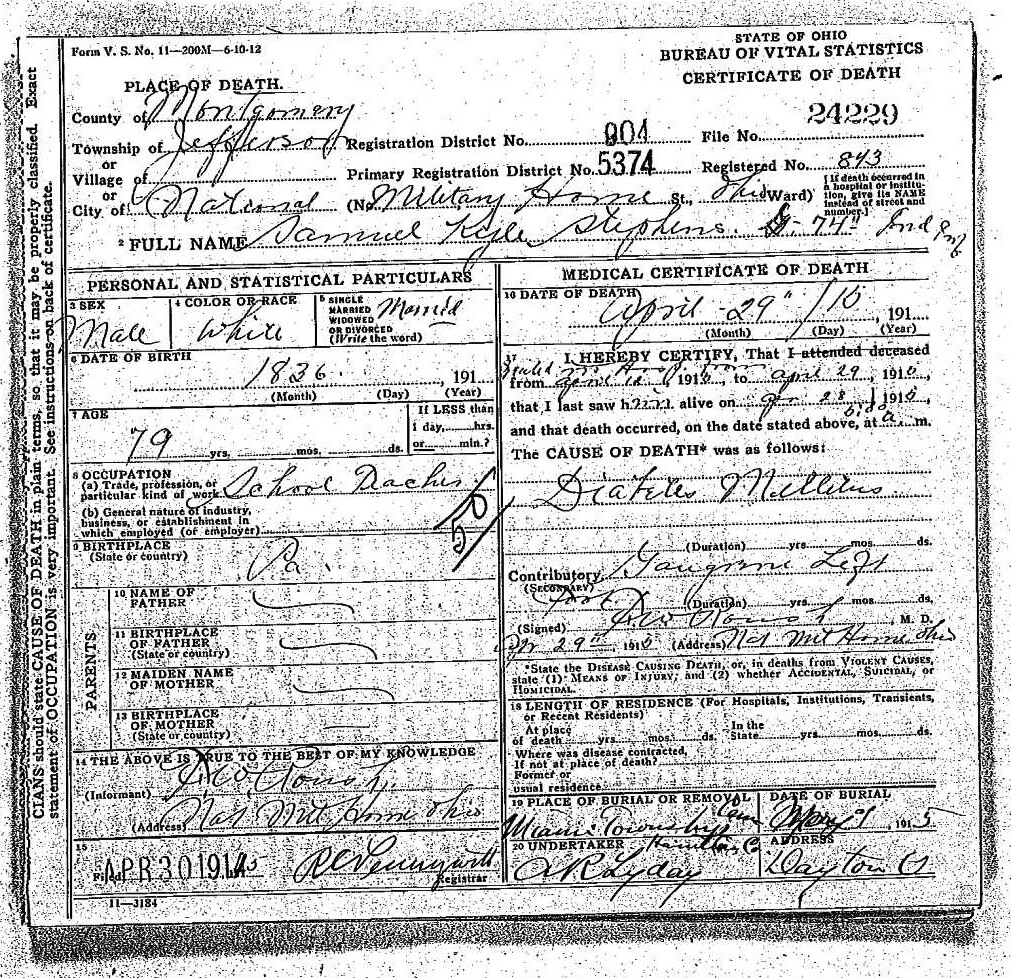 Form V. S. No. 11—200M—6-10-12
STATE OF OHIO
BUREAU OF VITAL STATISTICS
CERTIFICATE OF DEATH
PLACE OF DEATH.
County of Montgomery
Township of Jefferson Registration District No. 904 File No. 24229
or
Village of Primary Registration District No. 5374 Registered No. 843
or
City of National (No. Military Home St., Ohio Ward)
[If death occurred in
a hospital or institu-
tion, give its NAME
instead of street and
number.]
2 FULL NAME Samuel Kyle Stephens. G. 74" Ind Inf
PERSONAL AND STATISTICAL PARTICULARS
3 SEX
Male
4 COLOR OR RACE
White
5 SINGLE
MARRIED
WIDOWED
OR DIVORCED
(Write the word)
Married
6 DATE OF BIRTH
1836. , 191
(Month) (Day) (Year)
7 AGE
79 yrs. mos. ds.
If LESS than
1 day, hrs.
or min.?
8 OCCUPATION
(a) Trade, profession, or
particular kind of work School Teacher
(b) General nature of industry,
business, or establishment in
which employed (of employer)
50
9 BIRTHPLACE
(State or country)
Pa.
PARENTS
10 NAME OF
FATHER
11 BIRTHPLACE
OF FATHER
(State or country)
12 MAIDEN NAME
OF MOTHER
13 BIRTHPLACE
OF MOTHER
(State or country)
14 THE ABOVE IS TRUE TO THE BEST OF MY KNOWLEDGE
(Informant)
(Address) Nat Mil Home Ohio
15
Filed APR 30 1915
Registrar
11—3184
MEDICAL CERTIFICATE OF DEATH
16 DATE OF DEATH
April 29" / 15 , 191
(Month) (Day) (Year)
17 I HEREBY CERTIFY, That I attended deceased
from April 1915, to April 29, 1915,
that I last saw him alive on Apr 28, 1915
and that death occurred, on the date stated above, at a m.
The CAUSE OF DEATH* was as follows:
Diabetes Mellitus
(Duration) yrs. mos. ds.
Contributory Gangrene Left
(SECONDARY) foot (Duration) yrs. mos. ds.
(Signed) M. D.
Apr 29th, 1915 (Address) Nat Mil Home Ohio
*State the DISEASE CAUSING DEATH, or, in deaths from VIOLENT CAUSES,
state (1) MEANS OF INJURY; and (2) whether ACCIDENTAL, SUICIDAL, or
HOMICIDAL.
18 LENGTH OF RESIDENCE (For Hospitals, Institutions, Transients,
or Recent Residents)
At place
of death yrs. mos. ds.
In the
State yrs. mos. ds.
Where was disease contracted,
If not at place of death?
Former or
usual residence
19 PLACE OF BURIAL OR REMOVAL
Miami Township Cem
Hamilton Co
DATE OF BURIAL
May 1, 1915
20 UNDERTAKER
A R Lyday
ADDRESS
Dayton O
CIANS should state CAUSE OF DEATH in plain terms, so that it may be properly classified. Exact
statement of OCCUPATION is very important. See instructions on back of certificate.